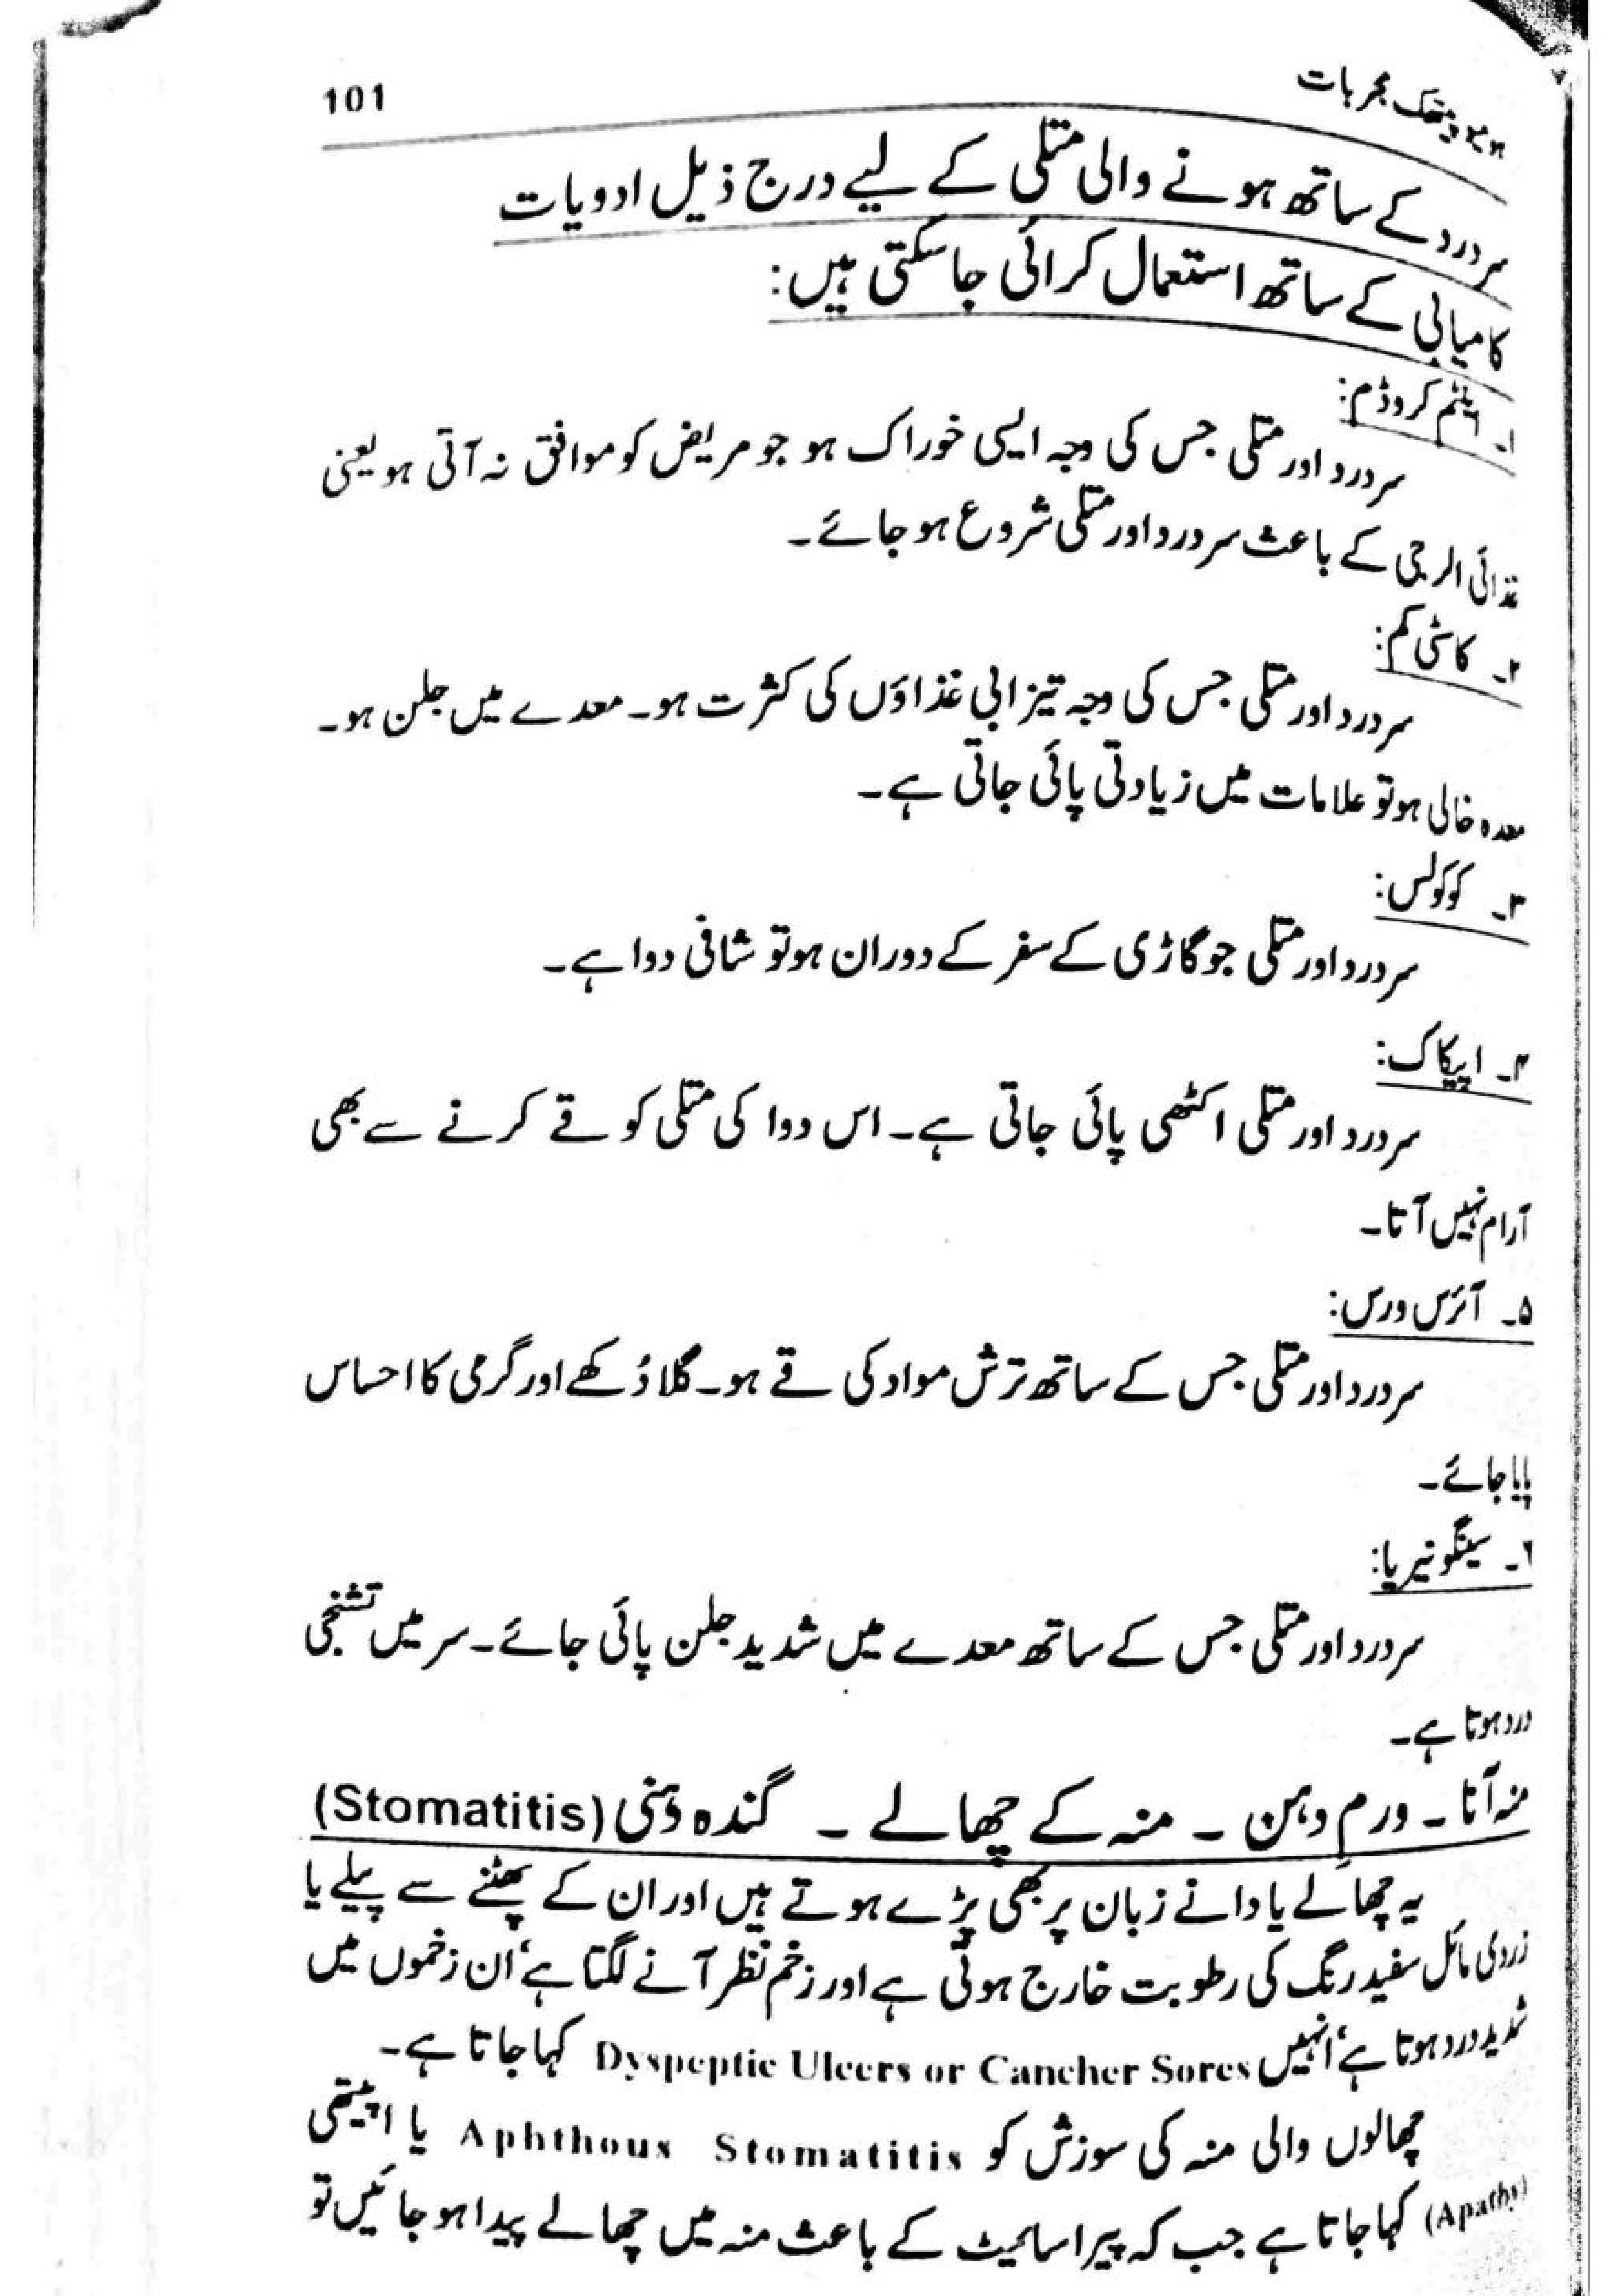 ہومیوپیتھک مجربات 101
سر درد کے ساتھ ہونے والی متلی کے لیے درج ذیل ادویات
کامیابی کے ساتھ استعمال کرائی جاسکتی ہیں:
۱۔ اینٹم کروڈم:
سر درد اور متلی جس کی وجہ ایسی خوراک ہو جو مریض کو موافق نہ آتی ہو یعنی
غذائی الرجی کے باعث سر درد اور متلی شروع ہو جائے۔
۲۔ کاسٹی کم:
سر درد اور متلی جس کی وجہ تیزابی غذاؤں کی کثرت ہو۔ معدے میں جلن ہو۔
معدہ خالی ہو تو علامات میں زیادتی پائی جاتی ہے۔
۳۔ کوکولس:
سر درد اور متلی جو گاڑی کے سفر کے دوران ہو تو شافی دوا ہے۔
۴۔ اپیکاک:
سر درد اور متلی اکٹھی پائی جاتی ہے۔ اس دوا کی متلی کو قے کرنے سے بھی
آرام نہیں آتا۔
۵۔ آئرس ورس:
سر درد اور متلی جس کے ساتھ ترش مواد کی قے ہو۔ گلا دُکھے اور گرمی کا احساس
پایا جائے۔
۶۔ سینگونیریا:
سر درد اور متلی جس کے ساتھ معدے میں شدید جلن پائی جائے۔ سر میں تشنجی
درد ہوتا ہے۔
منہ آنا ۔ ورمِ دہن ۔ منہ کے چھالے ۔ گندہ دہنی (Stomatitis)
یہ چھالے یا دانے زبان پر بھی پڑے ہوتے ہیں اور ان کے پھٹنے سے پیلے یا
زردی مائل سفید رنگ کی رطوبت خارج ہوتی ہے اور زخم نظر آنے لگتا ہے، ان زخموں میں
شدید درد ہوتا ہے، انہیں Dyspeptic Ulcers or Cancher Sores کہا جاتا ہے۔
چھالوں والی منہ کی سوزش کو Aphthous Stomatitis یا اپیتھی
(Apathy) کہا جاتا ہے جب کہ پیراسائیٹ کے باعث منہ میں چھالے پیدا ہو جائیں تو